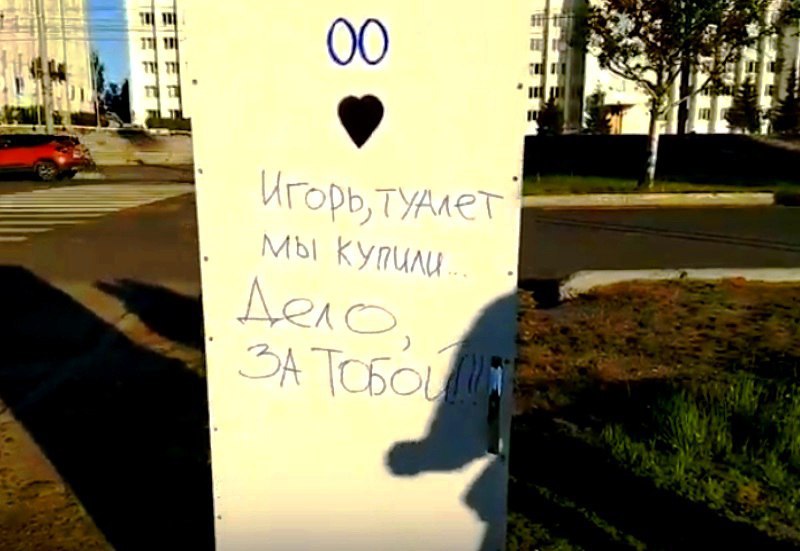 00
Игорь, туалет
мы купили...
Дело,
за тобой!!!